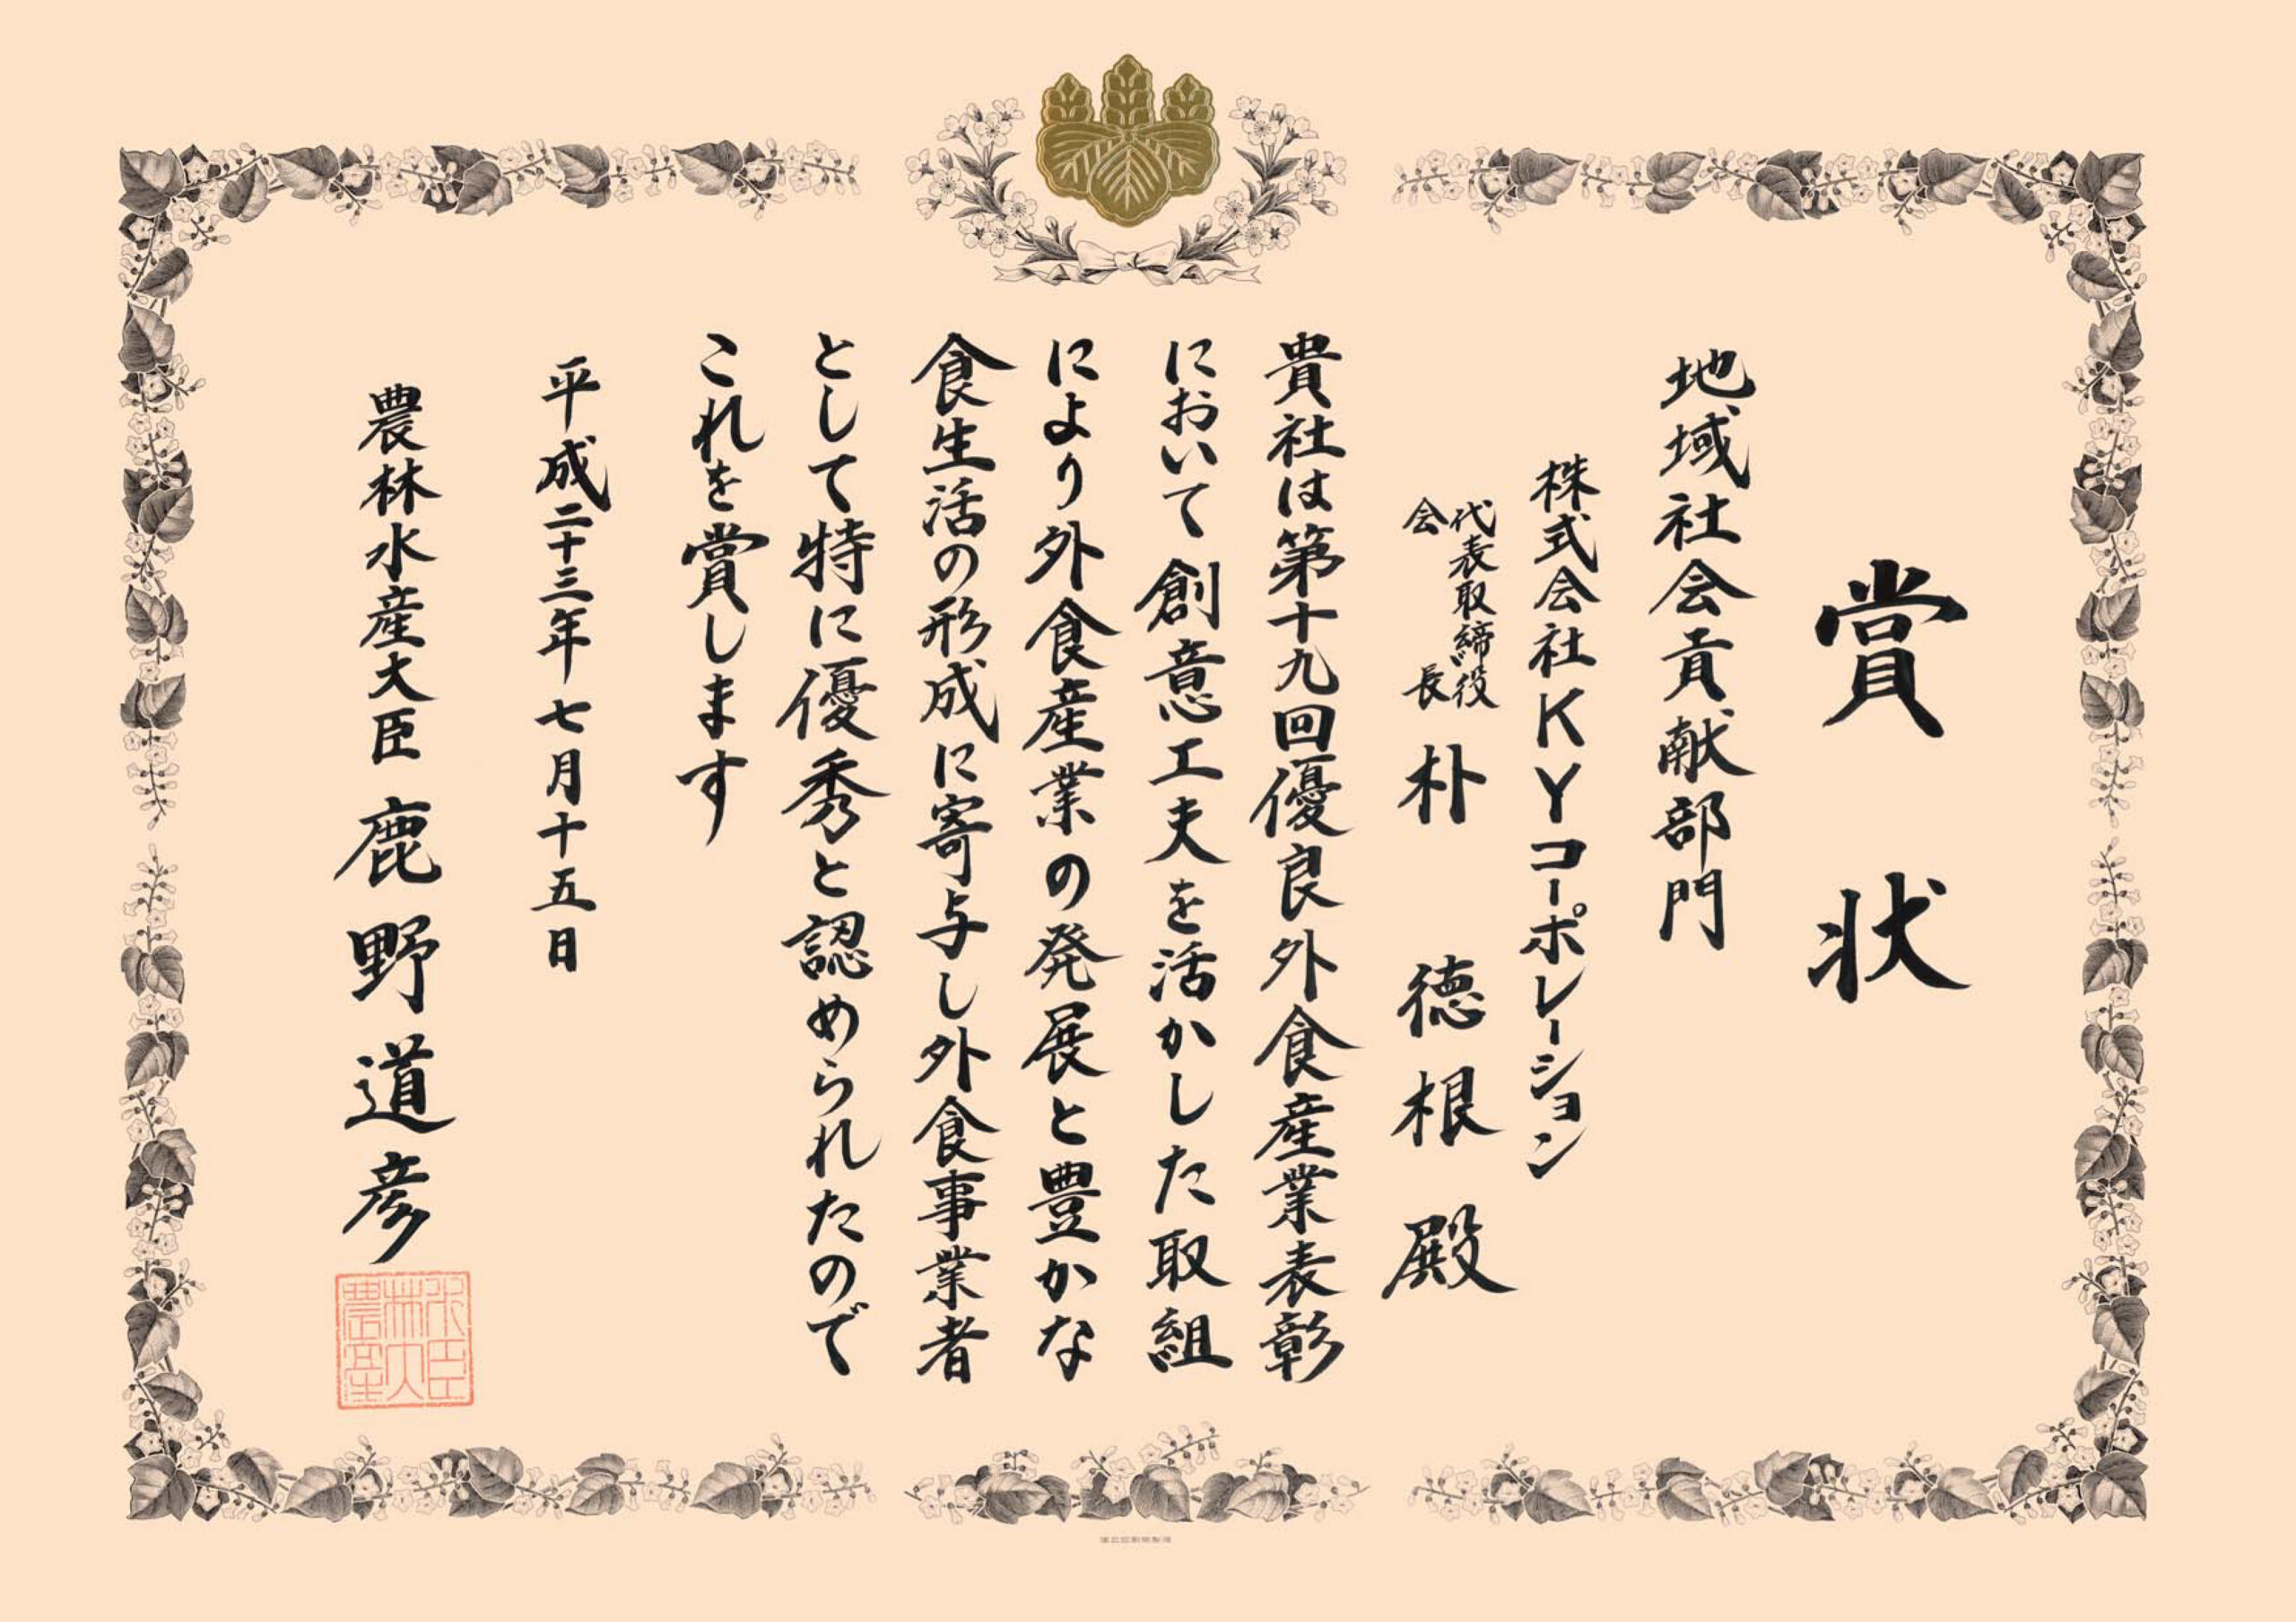 賞状
地域社会貢献部門
株式会社KYコーポレーション
代表取締役
会長
朴徳根殿
貴社は第十九回優良外食産業表彰
において創意工夫を活かした取組
により外食産業の発展と豊かな
食生活の形成に寄与し外食事業者
として特に優秀と認められたので
これを賞します
平成二十三年七月十五日
農林水産大臣鹿野道彦